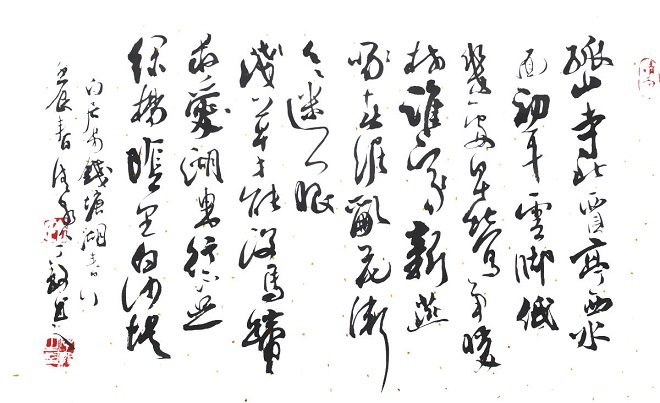 孤山寺北賈亭西水
面初平雲腳低
幾處早鶯爭暖
樹誰家新燕
啄春泥亂花漸
欲迷人眼
淺草才能沒馬蹄
最愛湖東行不足
綠楊陰里白沙堤
白居易錢塘湖春行